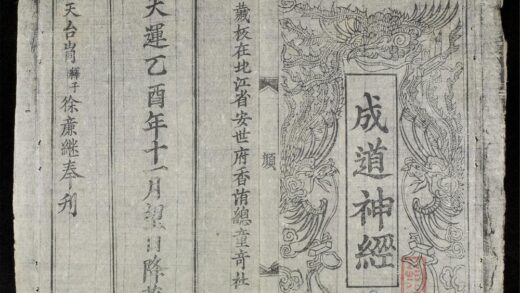 成道神經
板在北江省安世府香總童奇社
天運乙酉年十一月望日降
天台肖 子徐廉継奉刊